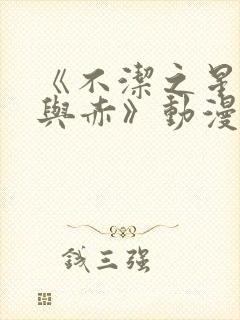 《不潔之星
與赤》動漫
錢三強